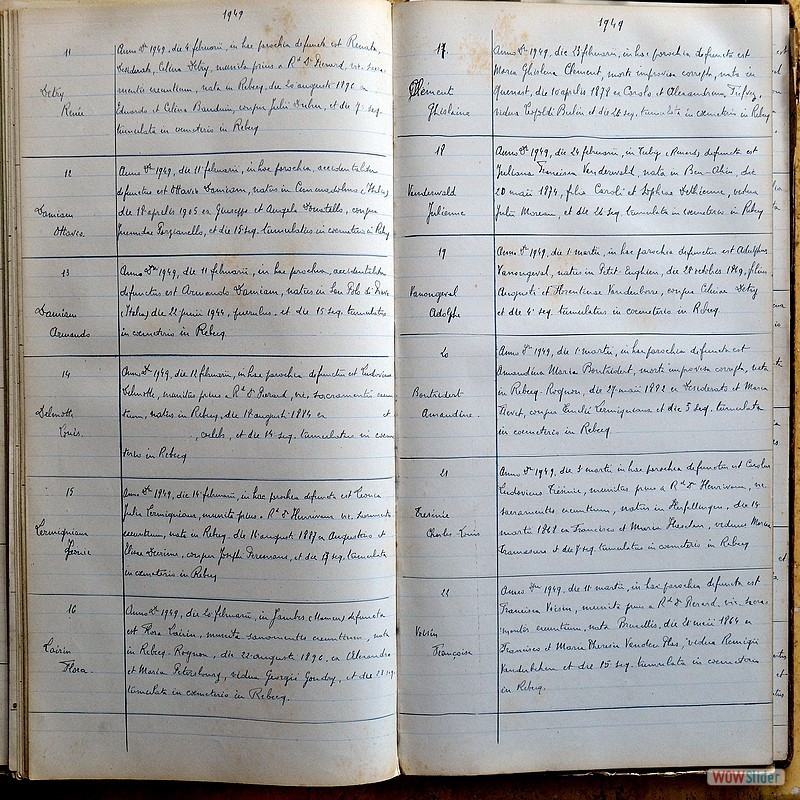 1949
11
Detry
Renée
Anno Dni 1949, die 4 februarii, in hac parochia defuncta est Renata,
Desiderata, Celina Detry, munita prius a Rdo D. Pierard, vic. sacra-
mentis exeuntium, nata in Rebecq, die 20 augusti 1896 ex
Eduardo et Celina Bauduin, conjux Julii et die 7 seq.
tumulata in cœmeterio in Rebecq
12
Damiani
Ottavio
Anno Dni 1949, die 11 februarii, in hac parochia, accidentaliter
defunctus est Ottavio Damiani, natus in (Italia)
die 18 aprilis 1905 ex Giuseppe et Angela Donatello, conjux
et die 15 seq. tumulatus in cœmeterio in Rebecq
13
Damiani
Armando
Anno Dni 1949, die 11 februarii, in hac parochia, accidentaliter
defunctus est Armando Damiani, natus in San Polo di Piave
(Italia) die 22 junii 1944, et die 15 seq. tumulatus
in cœmeterio in Rebecq.
14
Delmotte
Louis.
Anno Dni 1949, die 12 februarii, in hac parochia defunctus est Ludovicus
Delmotte, munitus prius a Rdo D. Pierard, vic. sacramentis exeun-
tium, natus in Rebecq, die 18 augusti 1884 ex et
, celebs, et die 14 seq. tumulatus in cœme-
terio in Rebecq
15
Cermigniaux
Léonie
Anno Dni 1949, die 14 februarii, in hac parochia defuncta est Leonia
Julia Cermigniaux, munita prius a Rdo D. Henrivaux vic. sacramentis
exeuntium, nata in Rebecq, die 16 augusti 1887 ex Augustino et
Elisa conjux Joseph et die 17 seq. tumulata
in cœmeterio in Rebecq
16
Lairin
Flora.
Anno Dni 1949, die 20 februarii, in Jambes (Namur) defuncta
est Flora Lairin, munita sacramentis exeuntium, nata
in Rebecq-Rognon, die 22 augusti 1896, ex Alexandro
et Maria Petersbourg, vidua Georgii Goudry, et die 23 seq.
tumulata in cœmeterio in Rebecq.
1949
17.
Clément
Ghislaine
Anno Dni 1949, die 23 februarii, in hac parochia defuncta est
Maria Ghislena Clement, morte improvisa correpta, nata in
Quenast, die 10 aprilis 1872 ex Carolo et Alexandrina
vidua Leopoldi et die 26 seq. tumulata in cœmeterio in Rebecq
18
Vanderwald
Julienne
Anno Dni 1949, die 24 februarii, in Tubize defuncta est
Juliana Francisca Vanderwald, nata in Ben-Ahin, die
20 maii 1874, filia Caroli et Sophiae Dethienne, vidua
Julii Moreau, et die 26 seq. tumulata in cœmeterio in Rebecq
19
Vanongeval
Adolphe
Anno Dni 1949, die 1 martii, in hac parochia defunctus est Adolphus
Vanongeval, natus in Petit-Enghien, die 28 octobris 1869, filius
Augusti et Florentinae Vandenborre, conjux Celinae Detry
et die 4 seq. tumulatus in cœmeterio in Rebecq
20
Bontridert
Amandine.
Anno Dni 1949, die 1 martii, in hac parochia defuncta est
Amandina Maria Bontridert, morte improvisa correpta, nata
in Rebecq-Rognon, die 27 maii 1882 ex Desiderato et Maria
conjux Emilii Cermigniaux et die 5 seq. tumulata
in cœmeterio in Rebecq.
21
Tresinie
Charles Louis
Anno Dni 1949, die 3 martii in hac parochia defunctus est Carolus
Ludovicus Trésinie, munitus prius a Rdo D. Henrivaux, vic.
sacramentis exeuntium, natus in Herfelingen, die 14
martii 1868 ex Francisco et Maria viduus Maria
et die 7 seq. tumulatus in cœmeterio in Rebecq
22
Voisin
Françoise
Anno Dni 1949, die 11 martii, in hac parochia defuncta est
Francisca Voisin, munita prius a Rdo D. Pierard, vic. sacra-
mentis exeuntium, nata Bruxellis, die 21 maii 1864 ex
Francisco et Maria Theresia Vanden Plas, vidua Remigii
et die 15 seq. tumulata in cœmeterio
in Rebecq.
WOWSlider